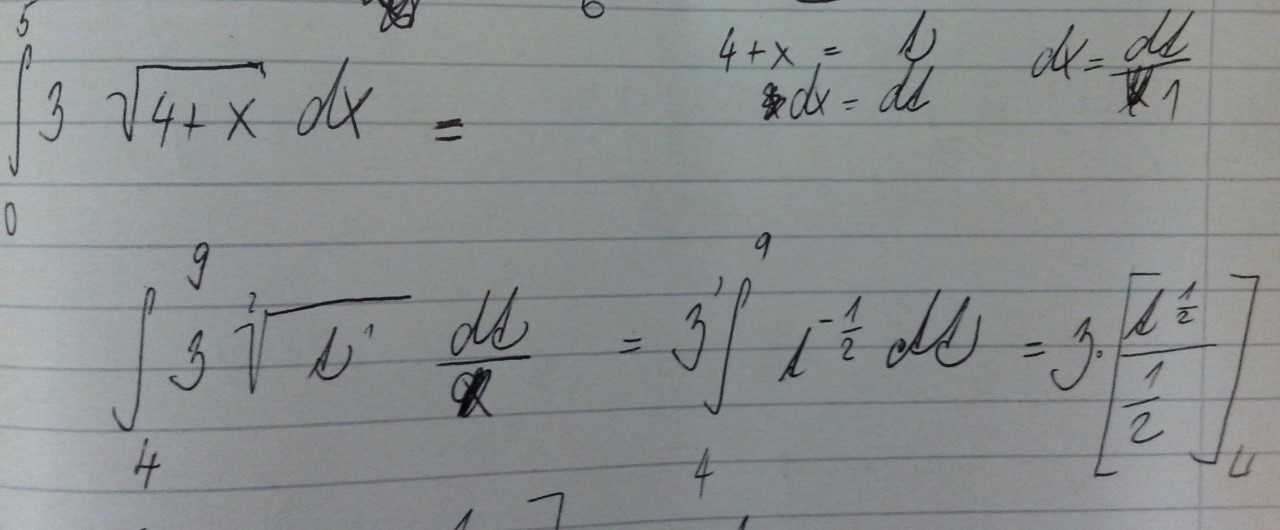 ∫₀⁵ 3 √(4+x) dx =
4+x = t
dx = dt
dx = dt/1
∫₄⁹ 3 ²√(t¹) dt = 3 ∫₄⁹ t^(-1/2) dt = 3·[t^(1/2) / (1/2)]₄